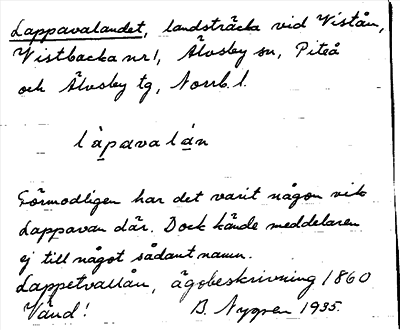 Lappavalandet, landsträcka vid Vistån,
Vistbacka nr 1, Älvsby sn, Piteå
och Älvsby tg, Norrb. l.
làpavalán
Förmodligen har det varit någon vik
Lappavan där. Dock kände meddelaren
ej till något sådant namn.
Lappetvallån, ägobeskrivning 1860
Vänd! B. Nygren 1935.